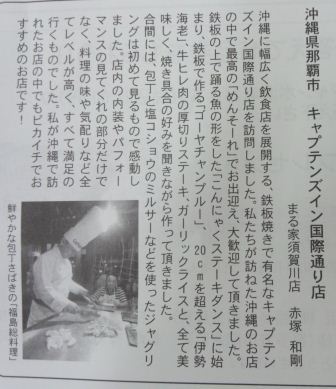 沖縄県那覇市　キャプテンズイン国際通り店
まる家須賀川店　赤塚　和剛
沖縄に幅広く飲食店を展開する、鉄板焼きで有名なキャプテン
ズイン国際通り店を訪問しました。私たちが訪ねた沖縄のお店
の中で最高の「めんそーれ」でお出迎え、大歓迎して頂きました。
鉄板の上で踊る魚の形をした「こんにゃくステーキダンス」に始
まり、鉄板で作る「ゴーヤチャンプルー」、20cmを超える「伊勢
海老」、牛ヒレ肉の厚切りステーキ、ガーリックライスと、全て美
味しく、焼き具合の好みを聞きながら作って頂きました。
合間には、包丁と塩コショウのミルサーなどを使ったジャグリ
ングは初めて見るもので感動し
ました。店内の内装やパフォー
マンスの見てくれの部分だけで
なく、料理の味や気配りなど全
てレベルが高く、すべて満足の
行くものでした。私が沖縄で訪
れたお店の中でもピカイチでお
すすめのお店です！
鮮やかな包丁さばきの「福島総料理」